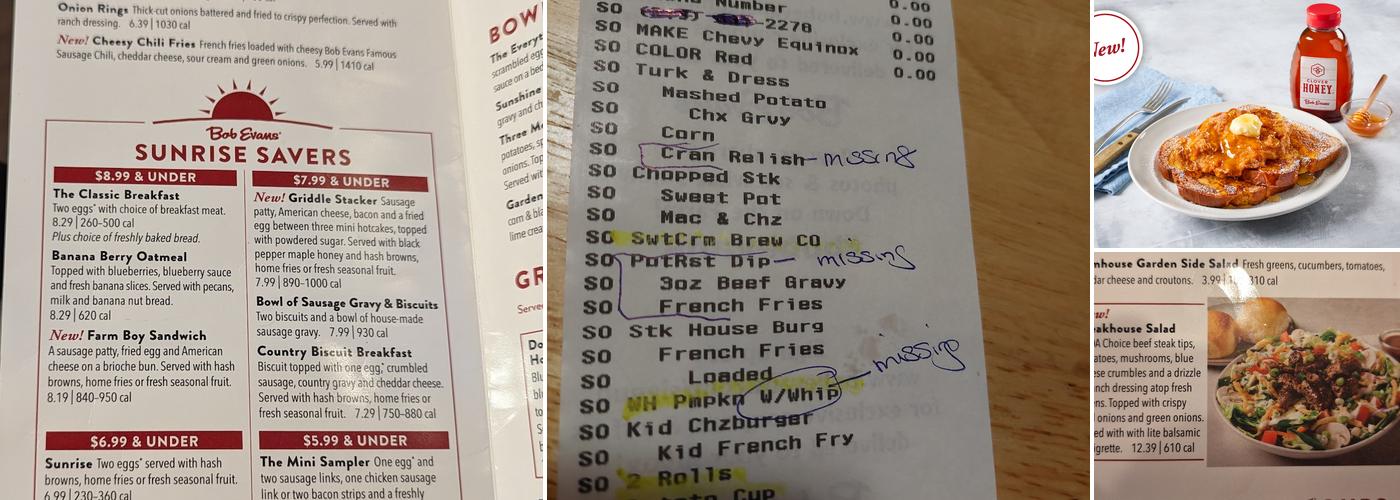 Onion Rings Thick-cut onions battered and fried to crispy perfection. Served with
ranch dressing. 6.39 | 1030 cal
New! Cheesy Chili Fries French fries loaded with cheesy Bob Evans Famous
Sausage Chili, cheddar cheese, sour cream and green onions. 5.99 | 1410 cal
Bob Evans
SUNRISE SAVERS
$8.99 & UNDER
The Classic Breakfast
Two eggs* with choice of breakfast meat.
8.29 | 260–500 cal
Plus choice of freshly baked bread.
Banana Berry Oatmeal
Topped with blueberries, blueberry sauce
and fresh banana slices. Served with pecans,
milk and banana nut bread.
8.29 | 620 cal
New! Farm Boy Sandwich
A sausage patty, fried egg and American
cheese on a brioche bun. Served with hash
browns, home fries or fresh seasonal fruit.
8.19 | 840–950 cal
$6.99 & UNDER
Sunrise Two eggs* served with hash
browns, home fries or fresh seasonal fruit.
6.99 | 230–360 cal
$7.99 & UNDER
New! Griddle Stacker Sausage
patty, American cheese, bacon and a fried
egg between three mini hotcakes, topped
with powdered sugar. Served with black
pepper maple honey and hash browns,
home fries or fresh seasonal fruit.
7.99 | 890–1000 cal
Bowl of Sausage Gravy & Biscuits
Two biscuits and a bowl of house-made
sausage gravy. 7.99 | 930 cal
Country Biscuit Breakfast
Biscuit topped with one egg,* crumbled
sausage, country gravy and cheddar cheese.
Served with hash browns, home fries or
fresh seasonal fruit. 7.29 | 750–880 cal
$5.99 & UNDER
The Mini Sampler One egg* and
two sausage links, one chicken sausage
link or two bacon strips and a freshly
BOW
The Everyt
scrambled egg
sauce on a bed
Sunshine
gravy and ch
Three Me
potatoes, s
onions. Top
Served wit
Garden
corn & bla
lime crea
GR
Serve
Number 0.00
SO -2278
SO MAKE Chevy Equinox 0.00
SO COLOR Red 0.00
SO Turk & Dress 0.00
SO Mashed Potato
SO Chx Grvy
SO Corn
SO Cran Relish - missing
SO Chopped Stk
SO Sweet Pot
SO Mac & Chz
SO SwtCrm Brew CO
SO PotRst Dip - missing
SO 3oz Beef Gravy
SO French Fries
SO Stk House Burg
SO French Fries
SO Loaded
SO WH Pmpkn W/Whip - missing
SO Kid Chzburger
SO Kid French Fry
SO 2 Rolls
Cup
New!
CLOVER
HONEY
Bob Evans
mhouse Garden Side Salad Fresh greens, cucumbers, tomatoes,
dar cheese and croutons. 3.99 | 310 cal
w!
eakhouse Salad
DA Choice beef steak tips,
atoes, mushrooms, blue
ese crumbles and a drizzle
nch dressing atop fresh
ns. Topped with crispy
onions and green onions.
ed with with lite balsamic
igrette. 12.39 | 610 cal